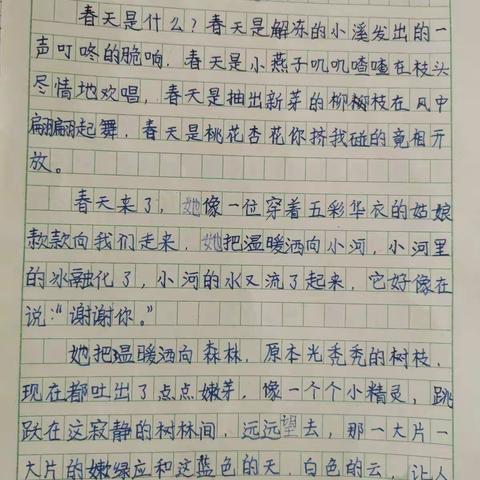 春天是什么?春天是解冻的小溪发出的一
声叮咚的脆响,春天是小燕子叽叽喳喳在枝头
尽情地欢唱,春天是抽出新芽的柳树枝在风中
翩翩起舞,春天是桃花杏花你挤我碰的竟相开
放。
春天来了,她像一位穿着五彩华衣的姑娘
款款向我们走来,她把温暖洒向小河,小河里
的冰融化了,小河的水又流了起来,它好像在
说:“谢谢你。”
她把温暖洒向森林,原本光秃秃的树枝,
现在都吐出了点点嫩芽,像一个个小精灵,跳
跃在这寂静的树林间,远远望去,那一大片一
大片的嫩绿应和这蓝色的天,白色的云,让人